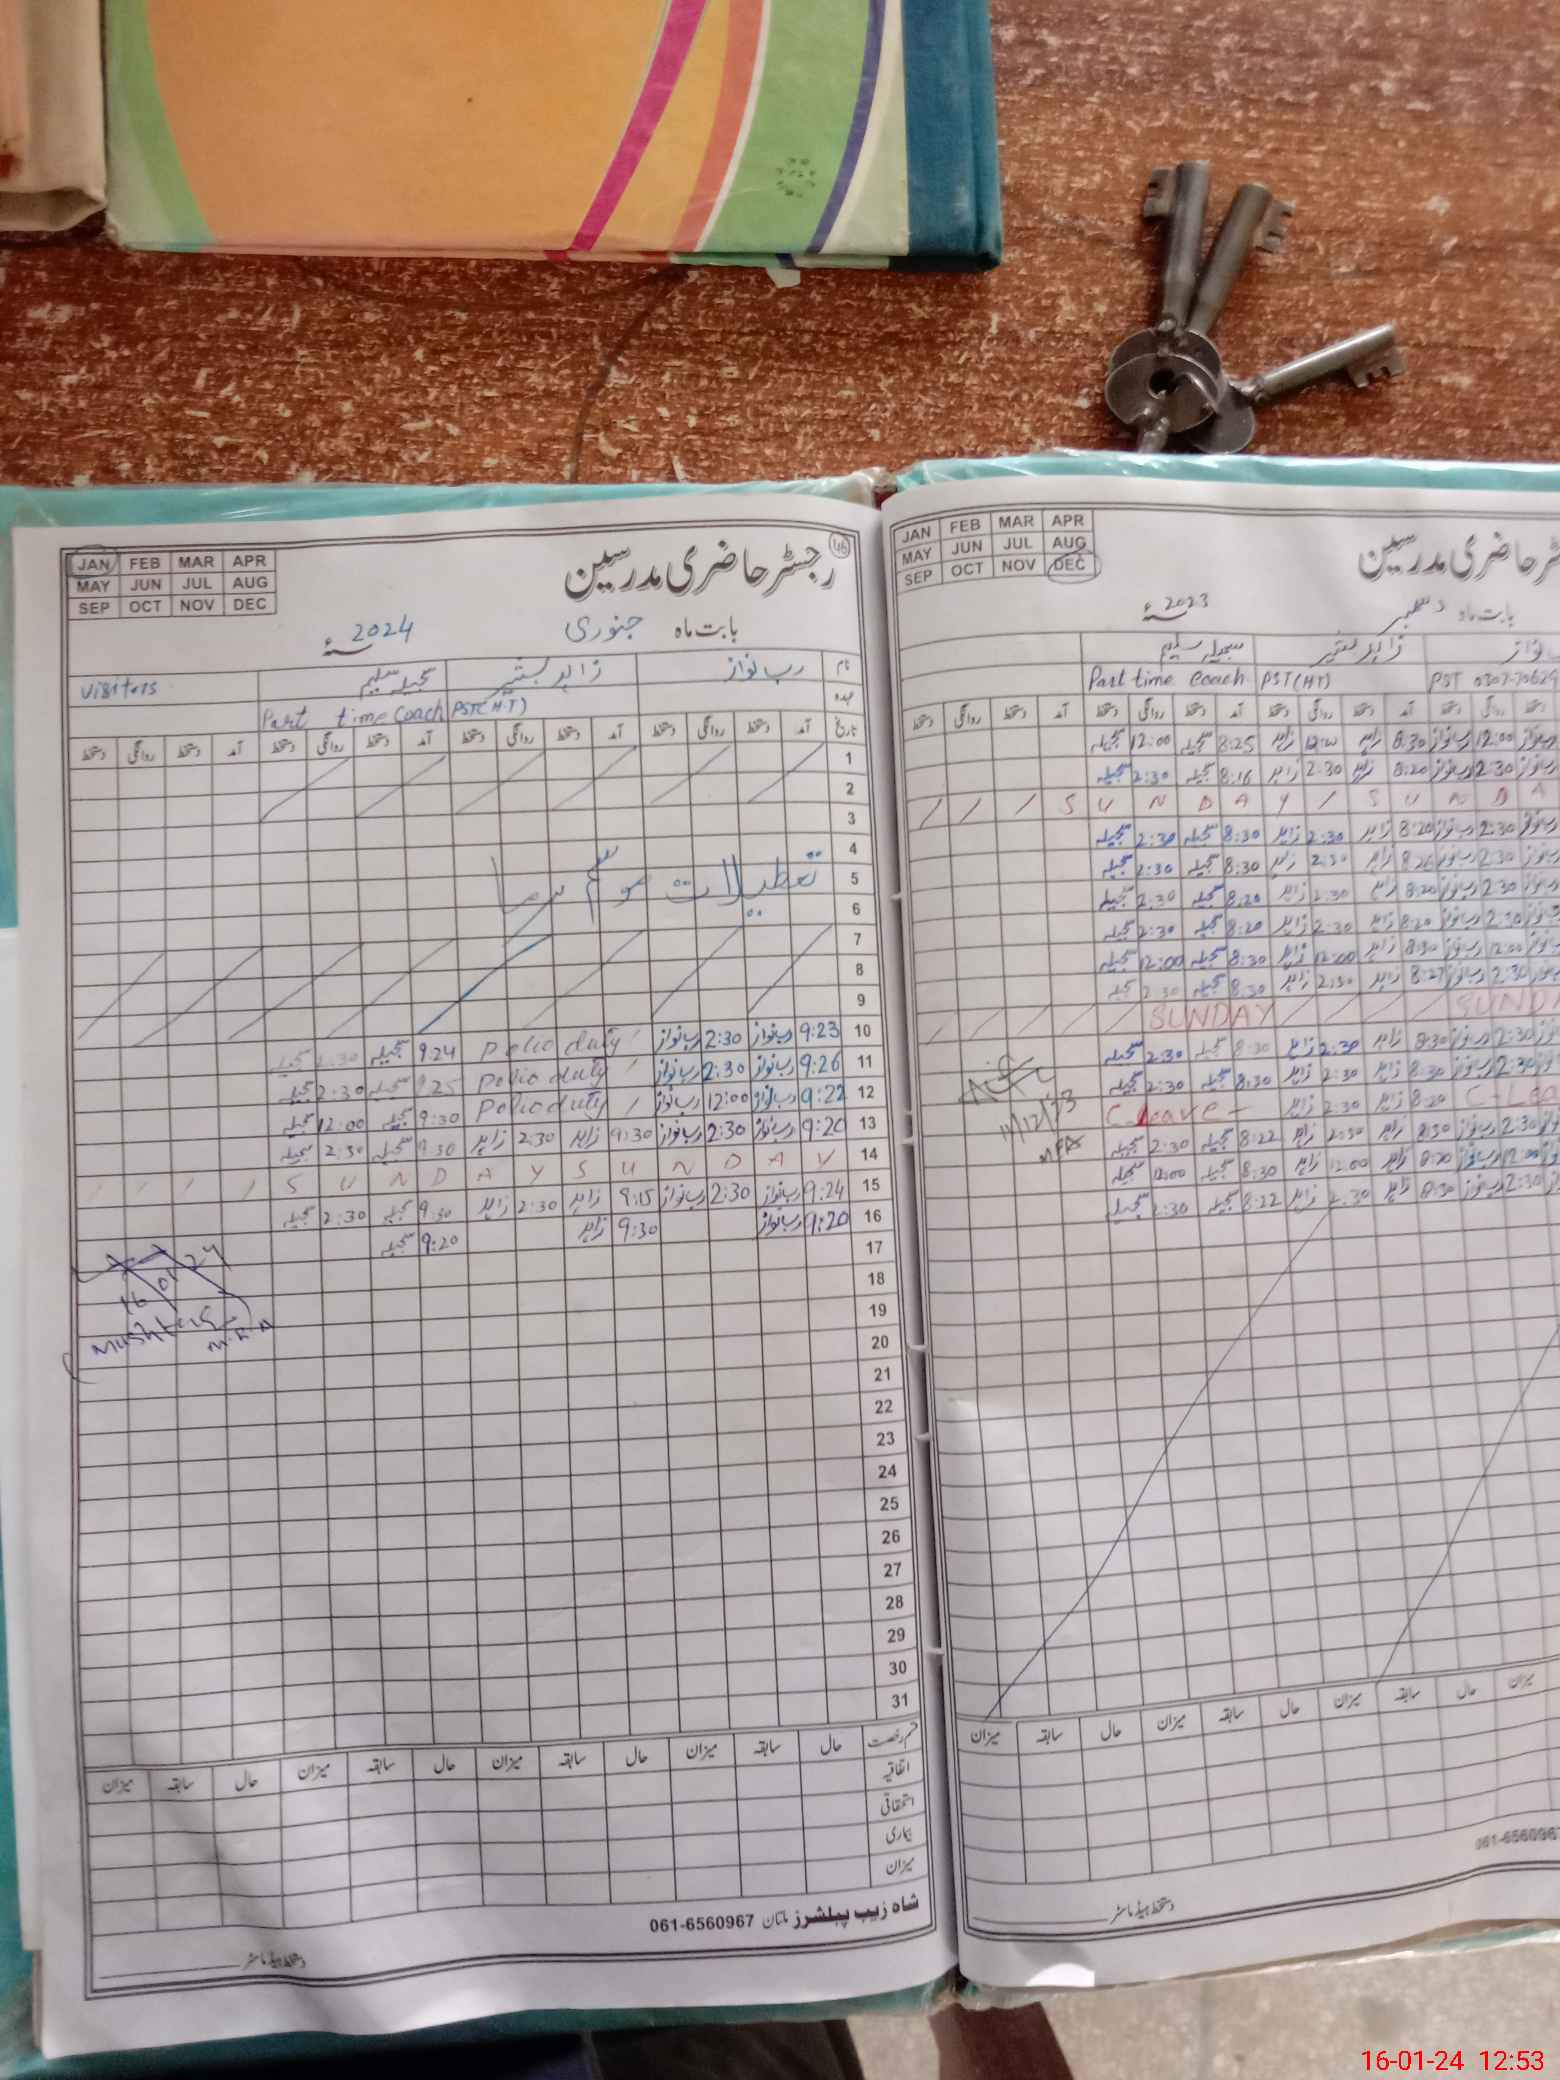 JAN FEB MAR APR
MAY JUN JUL AUG
SEP OCT NOV DEC
رجسٹر حاضری مدرسین
46
بابت ماہ جنوری 2024ء
نام رب نواز زاہد بشیر سجیلہ سلیم visitors
عہدہ PST(H.T) Part time Coach
تاریخ آمد دستخط روانگی دستخط آمد دستخط روانگی دستخط آمد دستخط روانگی دستخط آمد دستخط روانگی دستخط
1
2
3
4
تعطیلات موسم سرما
5
6
7
8
9
10 9:23 رب نواز 2:30 رب نواز Polio duty 9:24 سجیلہ 2:30 سجیلہ
11 9:26 رب نواز 2:30 رب نواز Polio duty 9:25 سجیلہ 2:30 سجیلہ
12 9:22 رب نواز 12:00 رب نواز Polio duty 9:30 سجیلہ 12:00 سجیلہ
13 9:20 رب نواز 2:30 رب نواز 9:30 زاہد 2:30 زاہد 9:30 سجیلہ 2:30 سجیلہ
14 S U N D A Y S U N D A Y
15 9:24 رب نواز 2:30 رب نواز 9:15 زاہد 2:30 زاہد 9:30 سجیلہ 2:30 سجیلہ
16 9:20 رب نواز 9:30 زاہد 9:20 سجیلہ
17
16 01 24
Mushtaq
M.E.A
18
19
20
21
22
23
24
25
26
27
28
29
30
31
قسم رخصت حال سابقہ میزان حال سابقہ میزان حال سابقہ میزان حال سابقہ میزان
اتفاقیہ
استحقاقی
بیماری
میزان
شاہ زیب پبلشرز ملتان 061-6560967
دستخط ہیڈ ماسٹر
JAN FEB MAR APR
MAY JUN JUL AUG
SEP OCT NOV DEC
حاضری مدرسین
بابت ماہ دسمبر 2023ء
نواز زاہد بشیر سجیلہ سلیم
PST PST(HT) Part time Coach
دستخط روانگی دستخط آمد دستخط روانگی دستخط آمد دستخط روانگی دستخط آمد
رب نواز 12:00 رب نواز 8:30 زاہد 12:00 زاہد 8:25 سجیلہ 12:00 سجیلہ
رب نواز 2:30 رب نواز 8:20 زاہد 2:30 زاہد 8:16 سجیلہ 2:30 سجیلہ
S U N D A Y S U N D A
رب نواز 2:30 رب نواز 8:20 زاہد 2:30 زاہد 8:30 سجیلہ 2:30 سجیلہ
رب نواز 2:30 رب نواز 8:26 زاہد 2:30 زاہد 8:30 سجیلہ 2:30 سجیلہ
رب نواز 2:30 رب نواز 8:20 زاہد 2:30 زاہد 8:20 سجیلہ 2:30 سجیلہ
رب نواز 2:30 رب نواز 8:20 زاہد 2:30 زاہد 8:20 سجیلہ 2:30 سجیلہ
رب نواز 12:00 رب نواز 8:30 زاہد 12:00 زاہد 8:30 سجیلہ 12:00 سجیلہ
رب نواز 2:30 رب نواز 8:27 زاہد 2:30 زاہد 8:30 سجیلہ 2:30 سجیلہ
SUNDAY SUNDA
رب نواز 2:30 رب نواز 8:30 زاہد 2:30 زاہد 8:30 سجیلہ 2:30 سجیلہ
رب نواز 2:30 رب نواز 8:30 زاہد 2:30 زاہد 8:30 سجیلہ 2:30 سجیلہ
11/12/23
C-Lea 8:20 زاہد 2:30 زاہد C-Leave
رب نواز 2:30 رب نواز 8:30 زاہد 2:30 زاہد 8:22 سجیلہ 2:30 سجیلہ
رب نواز 12:00 رب نواز 8:20 زاہد 12:00 زاہد 8:30 سجیلہ 12:00 سجیلہ
رب نواز 2:30 رب نواز 8:30 زاہد 2:30 زاہد 8:22 سجیلہ 2:30 سجیلہ
میزان حال سابقہ میزان حال سابقہ میزان حال سابقہ میزان
دستخط ہیڈ ماسٹر
16-01-24 12:53